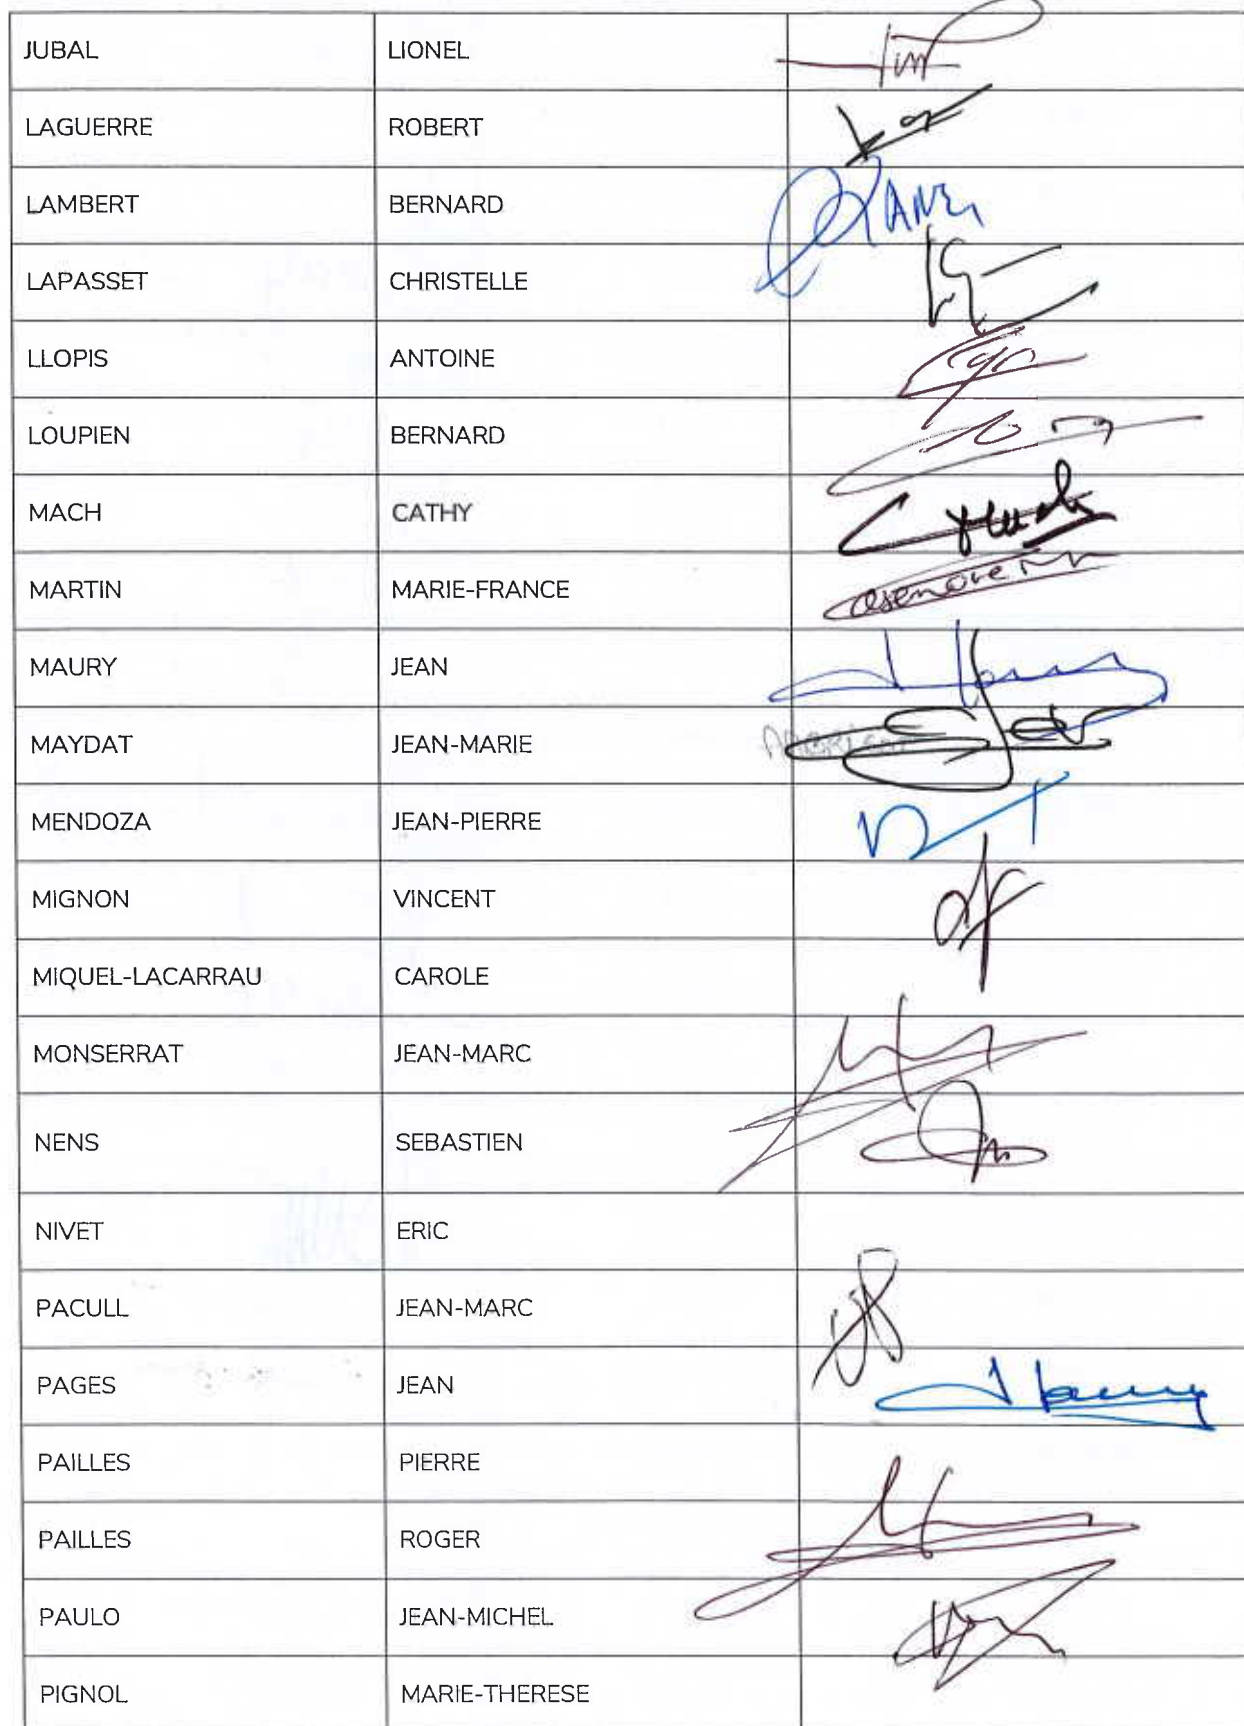 JUBAL LIONEL
LAGUERRE ROBERT
LAMBERT BERNARD
LAPASSET CHRISTELLE
LLOPIS ANTOINE
LOUPIEN BERNARD
MACH CATHY
MARTIN MARIE-FRANCE
MAURY JEAN
MAYDAT JEAN-MARIE
MENDOZA JEAN-PIERRE
MIGNON VINCENT
MIQUEL-LACARRAU CAROLE
MONSERRAT JEAN-MARC
NENS SEBASTIEN
NIVET ERIC
PACULL JEAN-MARC
PAGES JEAN
PAILLES PIERRE
PAILLES ROGER
PAULO JEAN-MICHEL
PIGNOL MARIE-THERESE